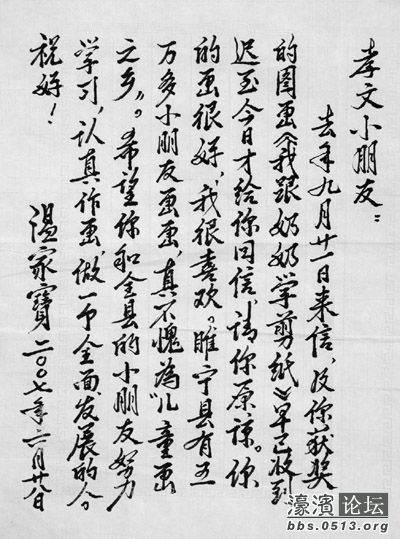 孝文小朋友：
去年九月廿一日来信，及你获奖
的图画《我跟奶奶学剪纸》早已收到
迟至今日才给你回信，请你原谅。你
的画很好，我很喜欢。睢宁县有五
万多小朋友画画，真不愧為“儿童画
之乡”。希望你和全县的小朋友努力
学习，认真作画，做一个全面发展的人。
祝好！
温家寶 二〇〇七年二月廿八日
濠滨论坛
bbs.0513.org